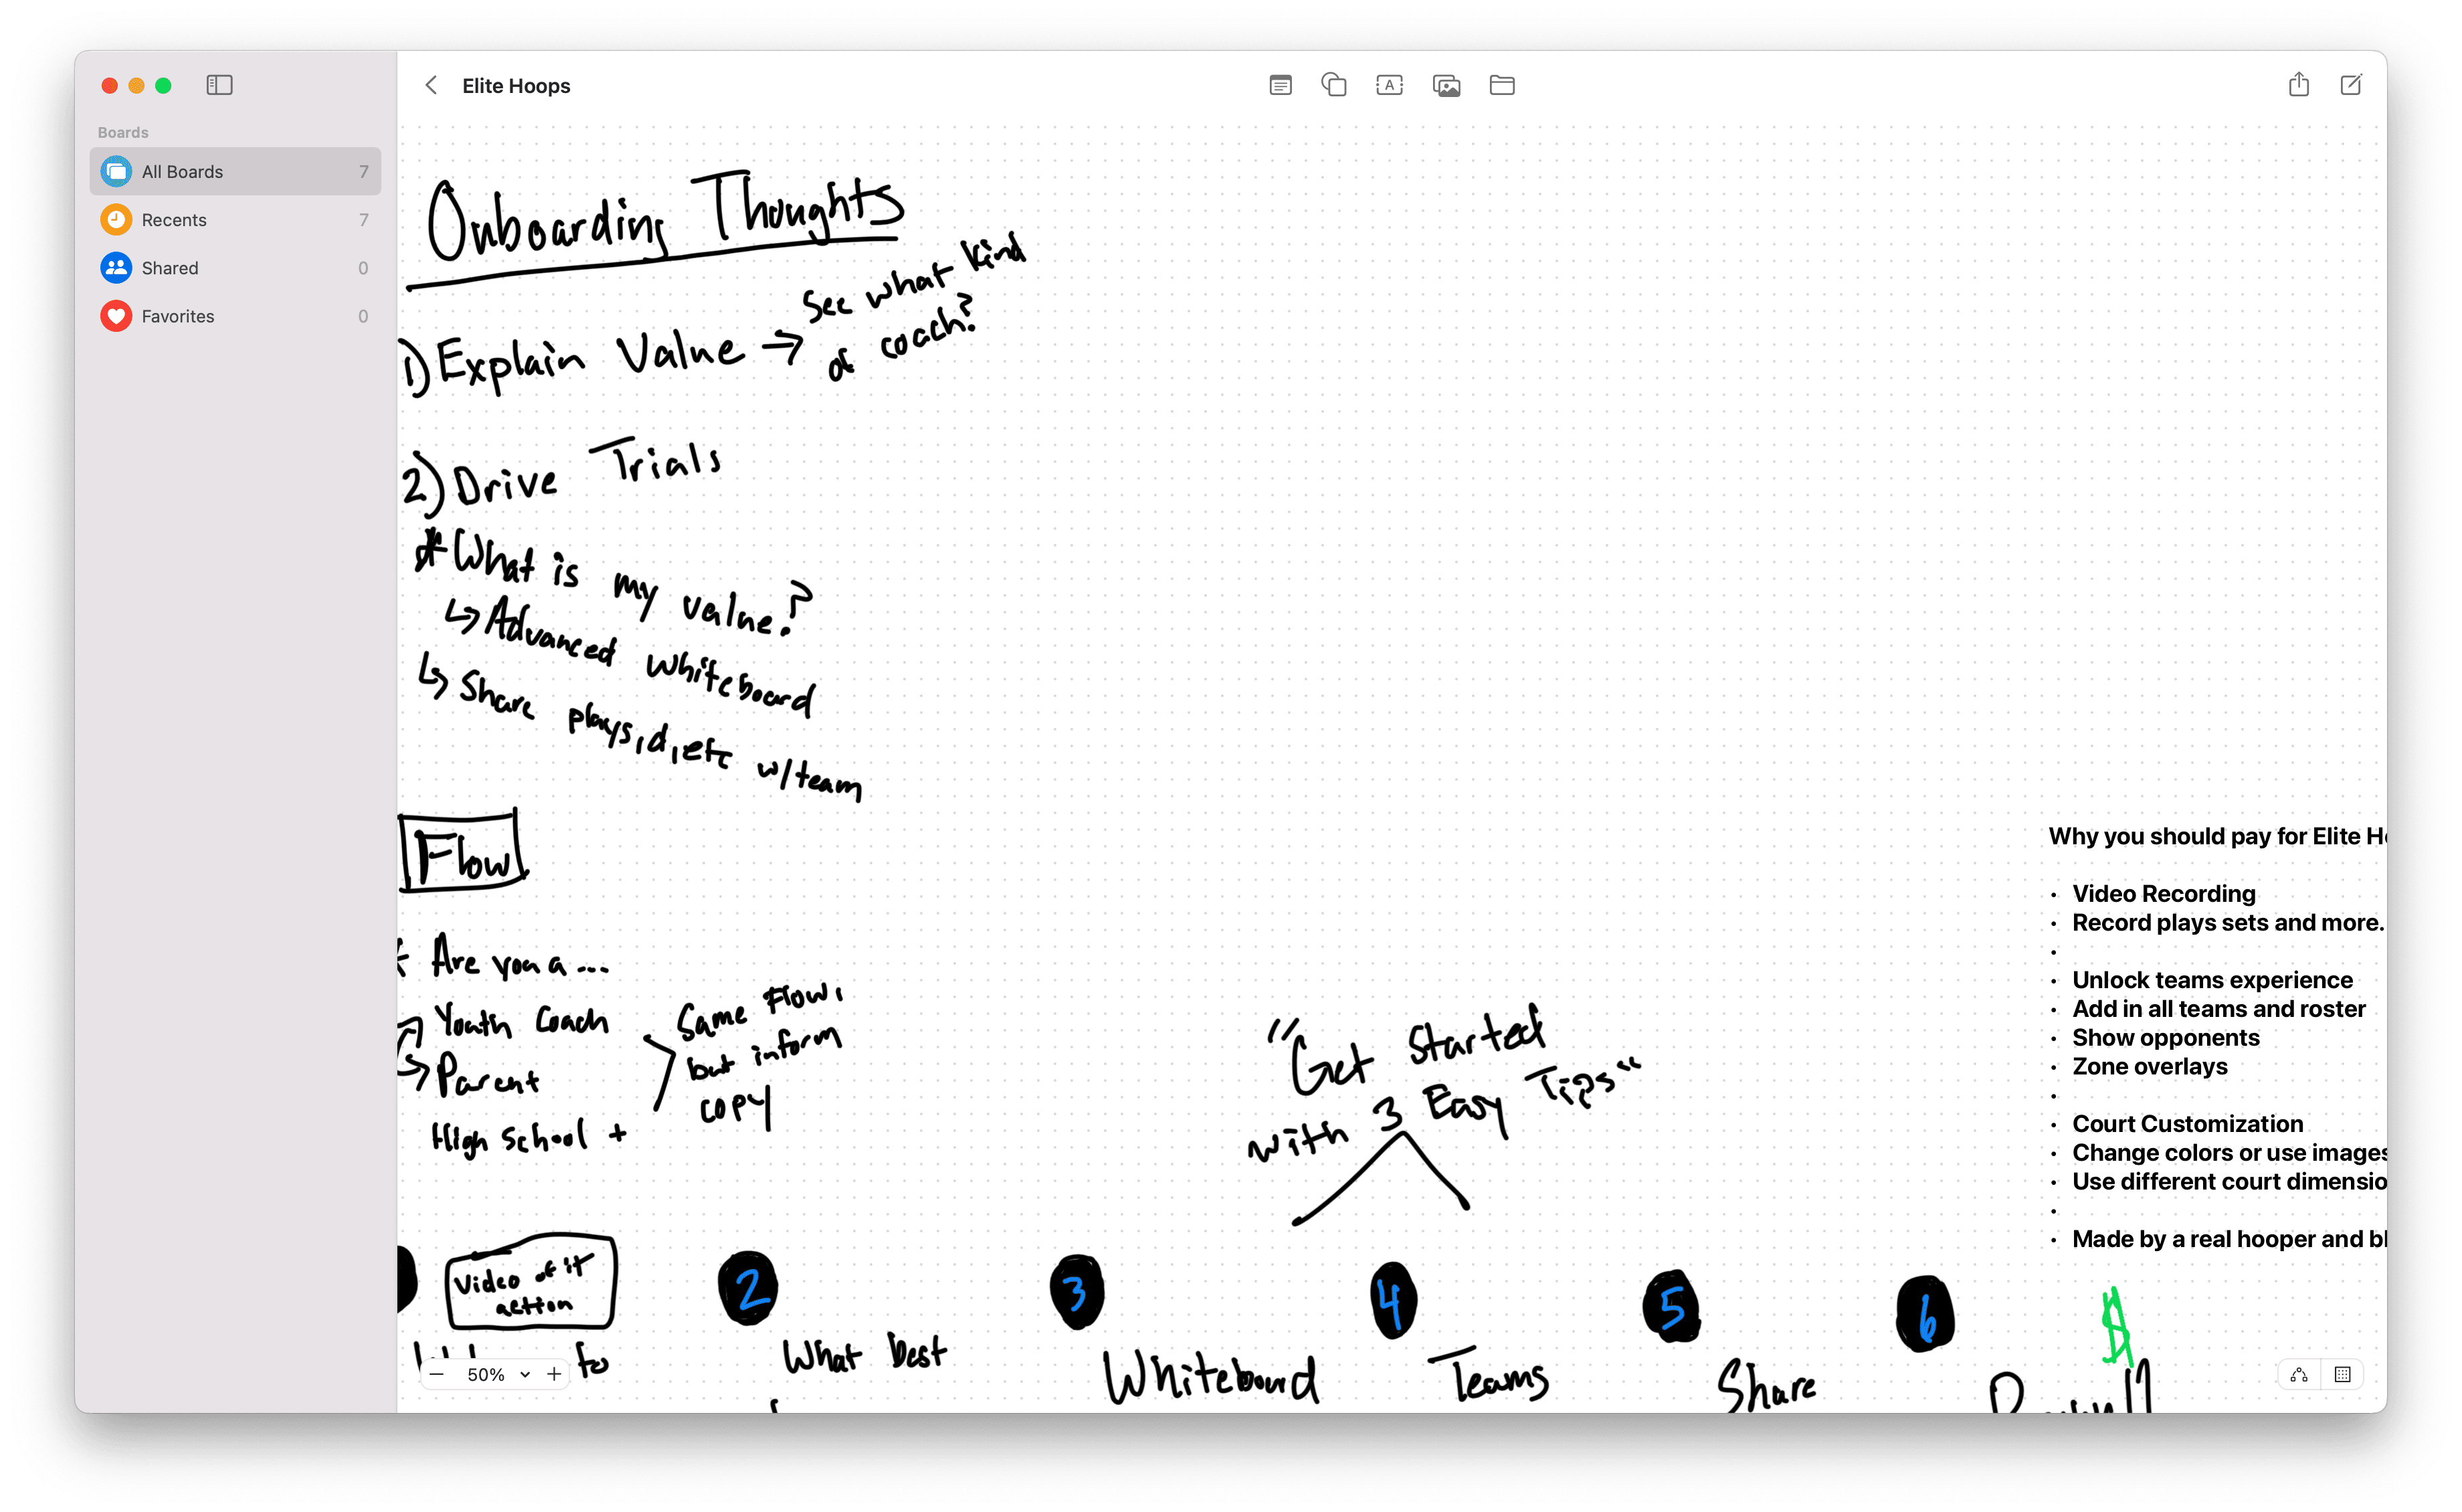 Elite Hoops
Boards
All Boards 7
Recents 7
Shared 0
Favorites 0
Onboarding Thoughts
1) Explain Value → See what kind
of coach?
2) Drive Trials
* What is my value?
↳ Advanced whiteboard
↳ Share plays, d, etc w/team
Flow
* Are you a ...
Youth Coach
Parent
High School +
Same flow,
but inform
copy
"Get Started
with 3 Easy Tips"
Why you should pay for Elite H
• Video Recording
• Record plays sets and more.
•
• Unlock teams experience
• Add in all teams and roster
• Show opponents
• Zone overlays
•
• Court Customization
• Change colors or use images
• Use different court dimensio
•
• Made by a real hooper and bl
Video of it
action
to
2
What best
3
Whiteboard
4
Teams
5
Share
6
$
50%